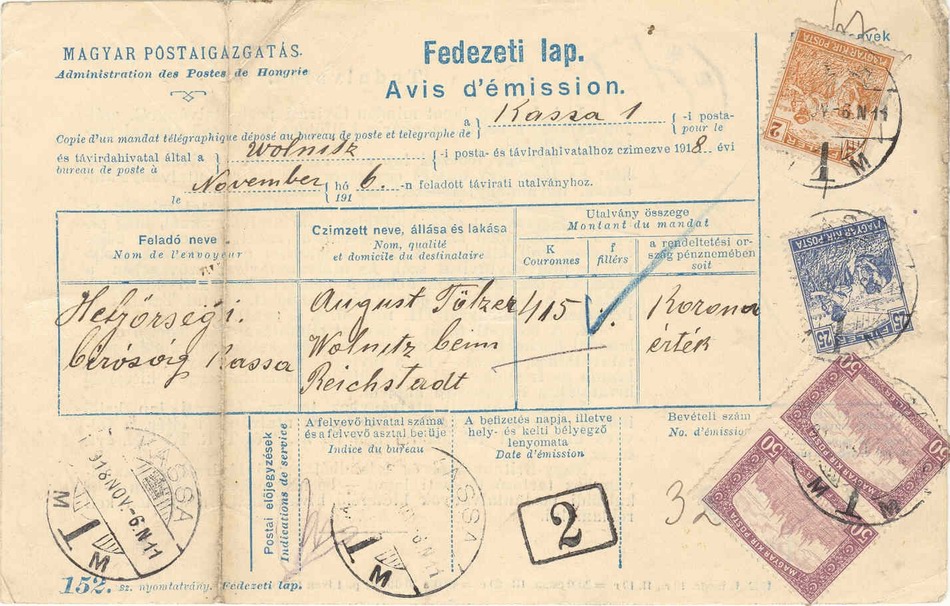 MAGYAR POSTAIGAZGATÁS.
Administration des Postes de Hongrie
Fedezeti lap.
Avis d'émission.
a Kassa 1 -i posta-
Copie d'un mandat télégraphique déposé au bureau de poste et telegraphe de pour le
és távirdahivatal által a Wolnitz -i posta- és távirdahivatalhoz czimezve 1918. évi
bureau de poste à
November hó 6. -n feladott távirati utalványhoz.
le 191
Feladó neve
Nom de l'envoyeur
Czimzett neve, állása és lakása
Nom, qualité
et domicile du destinataire
Utalvány összege
Montant du mandat
K
Couronnes
f
fillérs
a rendeltetési or-
szág pénznemében
soit
Helyőrségi
bíróság Kassa
August Tölzer
Wolnitz beim
Reichstadt
415
Korona
érték
Postai előjegyzések
Indications de service
A felvevő hivatal száma
és a felvevő asztal betűje
Indice du bureau
A befizetés napja, illetve
hely- és kelti bélyegző
lenyomata
Date d'émission
Bevételi szám
No. d'émission
32
2
KASSA
918 NOV.-6.N11
M
T
KASSA
6.N11
M
T
152. sz. nyomtatvány. Fedezeti lap.
MAGYAR KIR. POSTA
2 FILLÉR
V.-6.N11
T
M
MAGYAR KIR. POSTA
25 FILLÉR
25
MAGYAR KIR. POSTA
50
50
MAGYAR KIR. POSTA
50
50
M
T